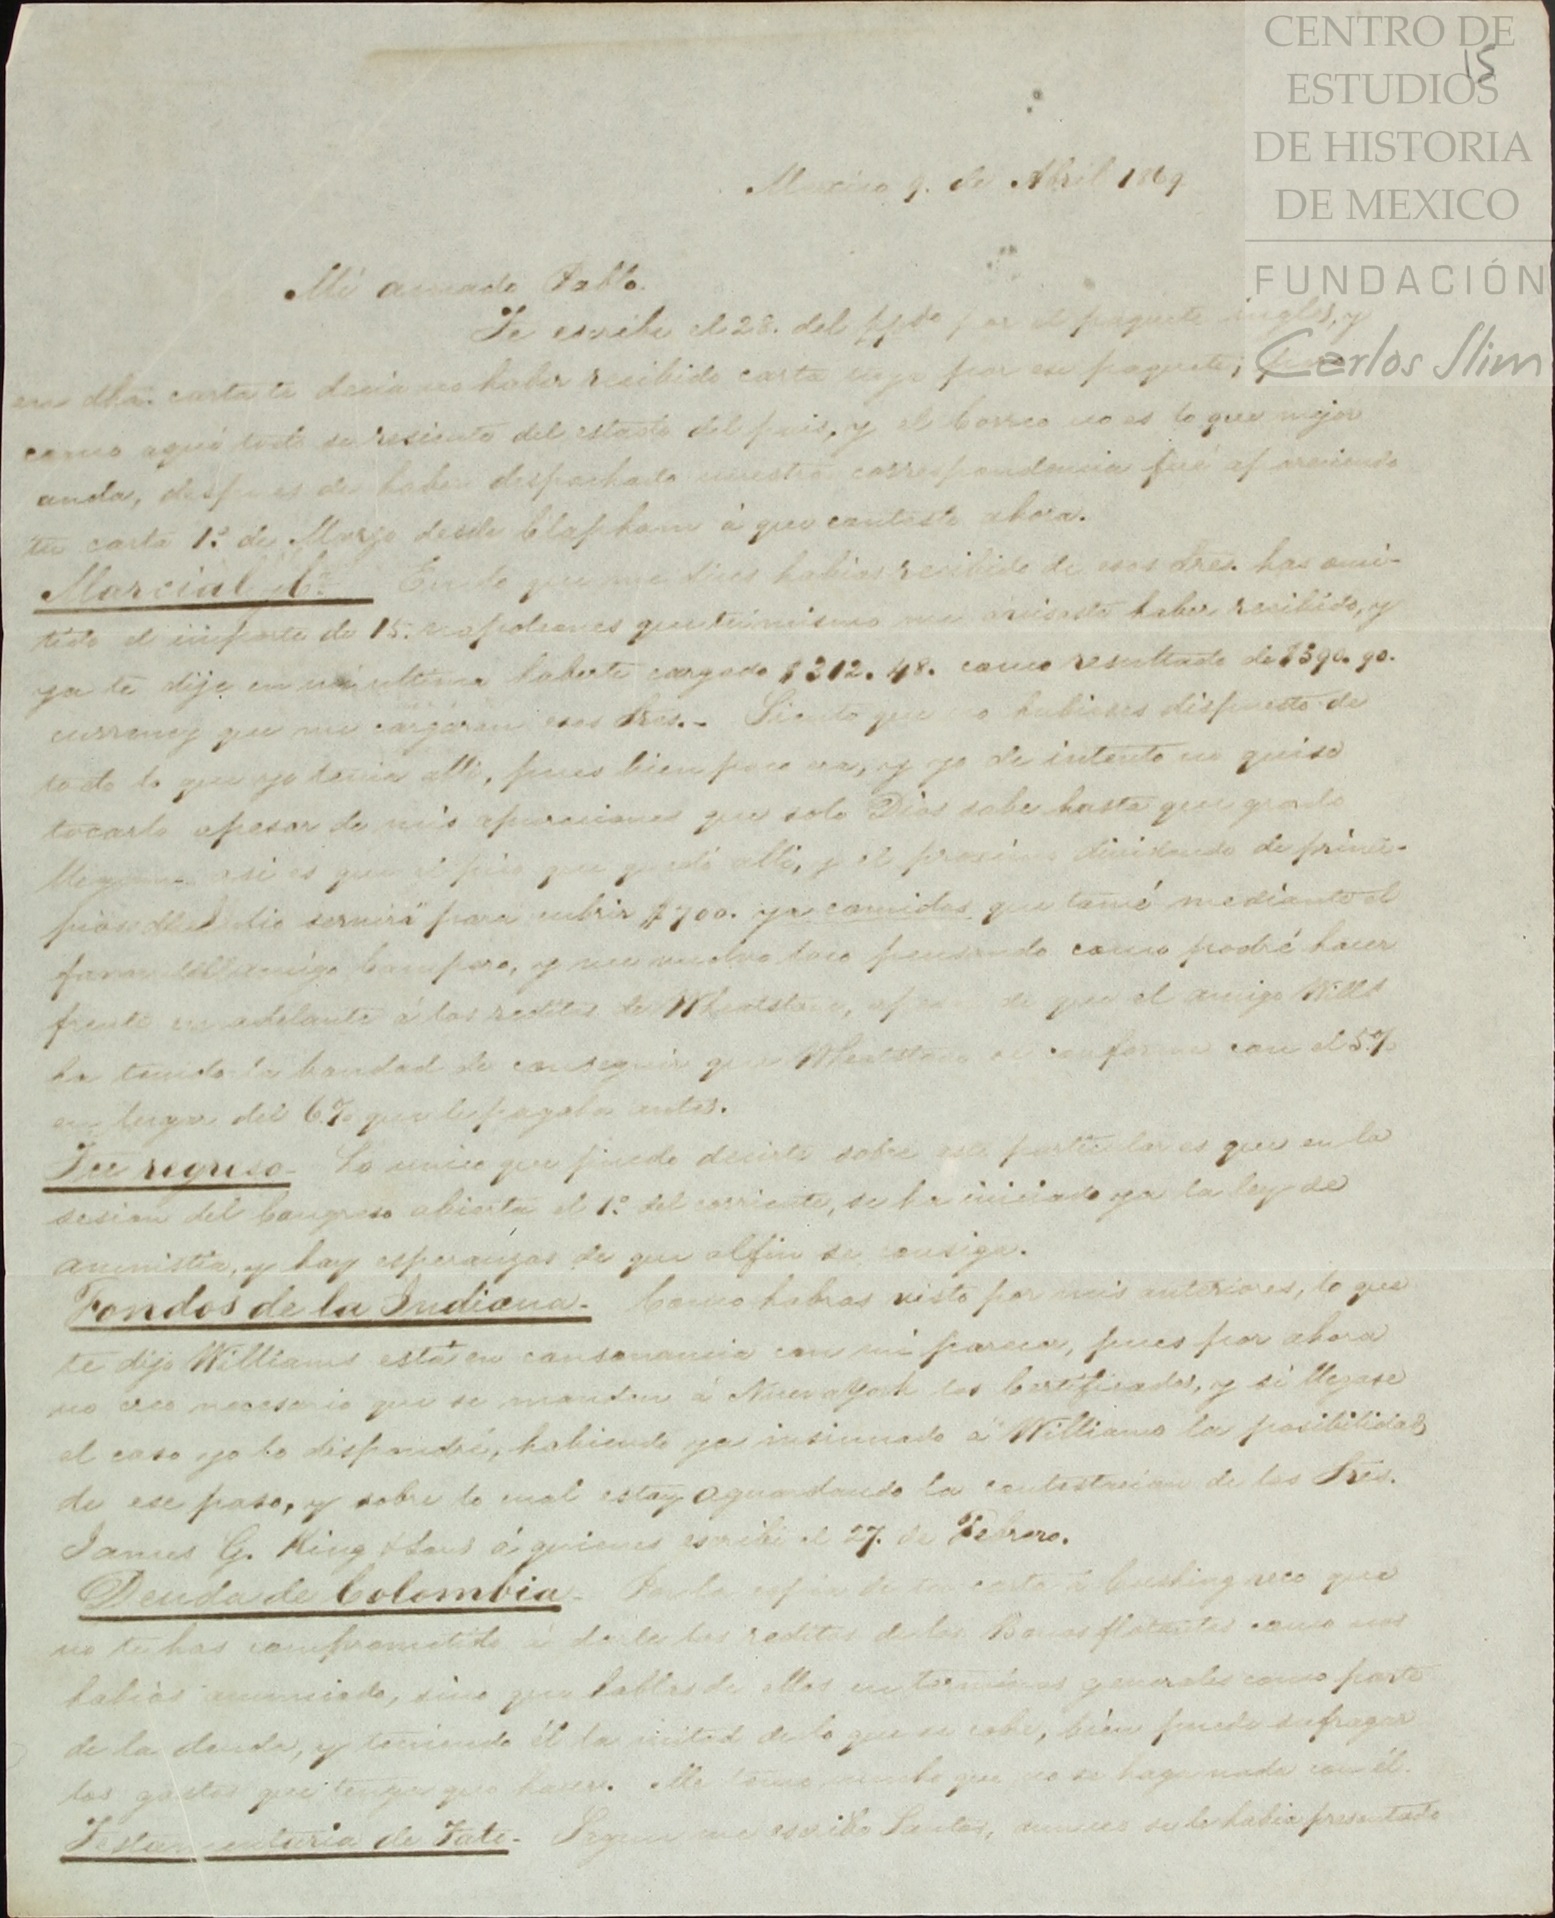 CENTRO DE
ESTUDIOS
DE HISTORIA
DE MEXICO
FUNDACIÓN
Carlos Slim
15
Mexico 9. de Abril 1869
Mi amado Pablo.
Te escribi el 28. del ppdo por el paquete ingles, y
en dha. carta te decia no haber recibido carta tuya por ese paquete; pero
como aqui todo se resiente del estado del pais, y el Correo no es lo que mejor
anda, despues de haber despachado nuestra correspondencia fué apareciendo
tu carta 1º de Marzo desde Clapham á que contesto ahora.
Marcial &Cª En lo que me dices habias recibido de esos Sres. has omi-
tido el importe de 15. napoleones que tu mismo me avisaste haber recibido, y
ya te dije en mi ultima haberte cargado $312.48. como resultado de $390.90.
currency que me cargaron esos Sres.- Siento que no hubieses dispuesto de
todo lo que yo tenia alli, pues bien poco era, y yo de intento no quise
tocarlo apesar de mis apuraciones que solo Dios sabe hasta que grado
llegan. asi es que el pico que quedó alli, y el proximo dividendo de princi-
pios de Julio servirá para cubrir $700. ya comidos que tomé mediante el
favor del amigo Campero, y me vuelvo loco pensando como podré hacer
frente en adelante á los reditos de Wheatstone, apesar de que el amigo Wills
ha tenido la bondad de conseguir que Wheatstone se conforme con el 5%
en lugar del 6% que le pagaba antes.
Tu regreso- Lo unico que puedo decirte sobre este particular es que en la
sesion del Congreso abierta el 1º del corriente, se ha iniciado ya la ley de
amnistia, y hay esperanzas de que alfin se consiga.
Fondos de la Indiana- Como habras visto por mis anteriores, lo que
te dijo Williams está en consonancia con mi parecer, pues por ahora
no creo necesario que se manden á Nueva York los Certificados, y si llegase
el caso yo lo dispondré, habiendo ya insinuado á Williams la posibilidad
de ese paso, y sobre lo cual estoy aguardando la contestacion de los Sres.
James G. King &Sons á quienes escribi el 27. de Febrero.
Deuda de Colombia- Por la copia de tu carta á Cushing veo que
no te has comprometido á darle los reditos de los Bonos flotantes como nos
habias anunciado, sino que hablas de ellos en terminos generales como parte
de la deuda, y teniendo él la mitad de lo que se cobre, bien puede sufragar
los gastos que tenga que hacer. Me temo mucho que no se haga nada con él.
Testamentaria de Tate- Segun me escribe Santos, aun no se le habia presentado